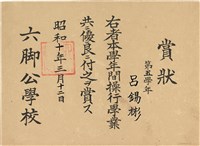 賞狀
第五學年
呂錫彬
右者本學年間操行學業
共ニ優良ニ付之ヲ賞ス
昭和十年三月二十二日
六脚公學校